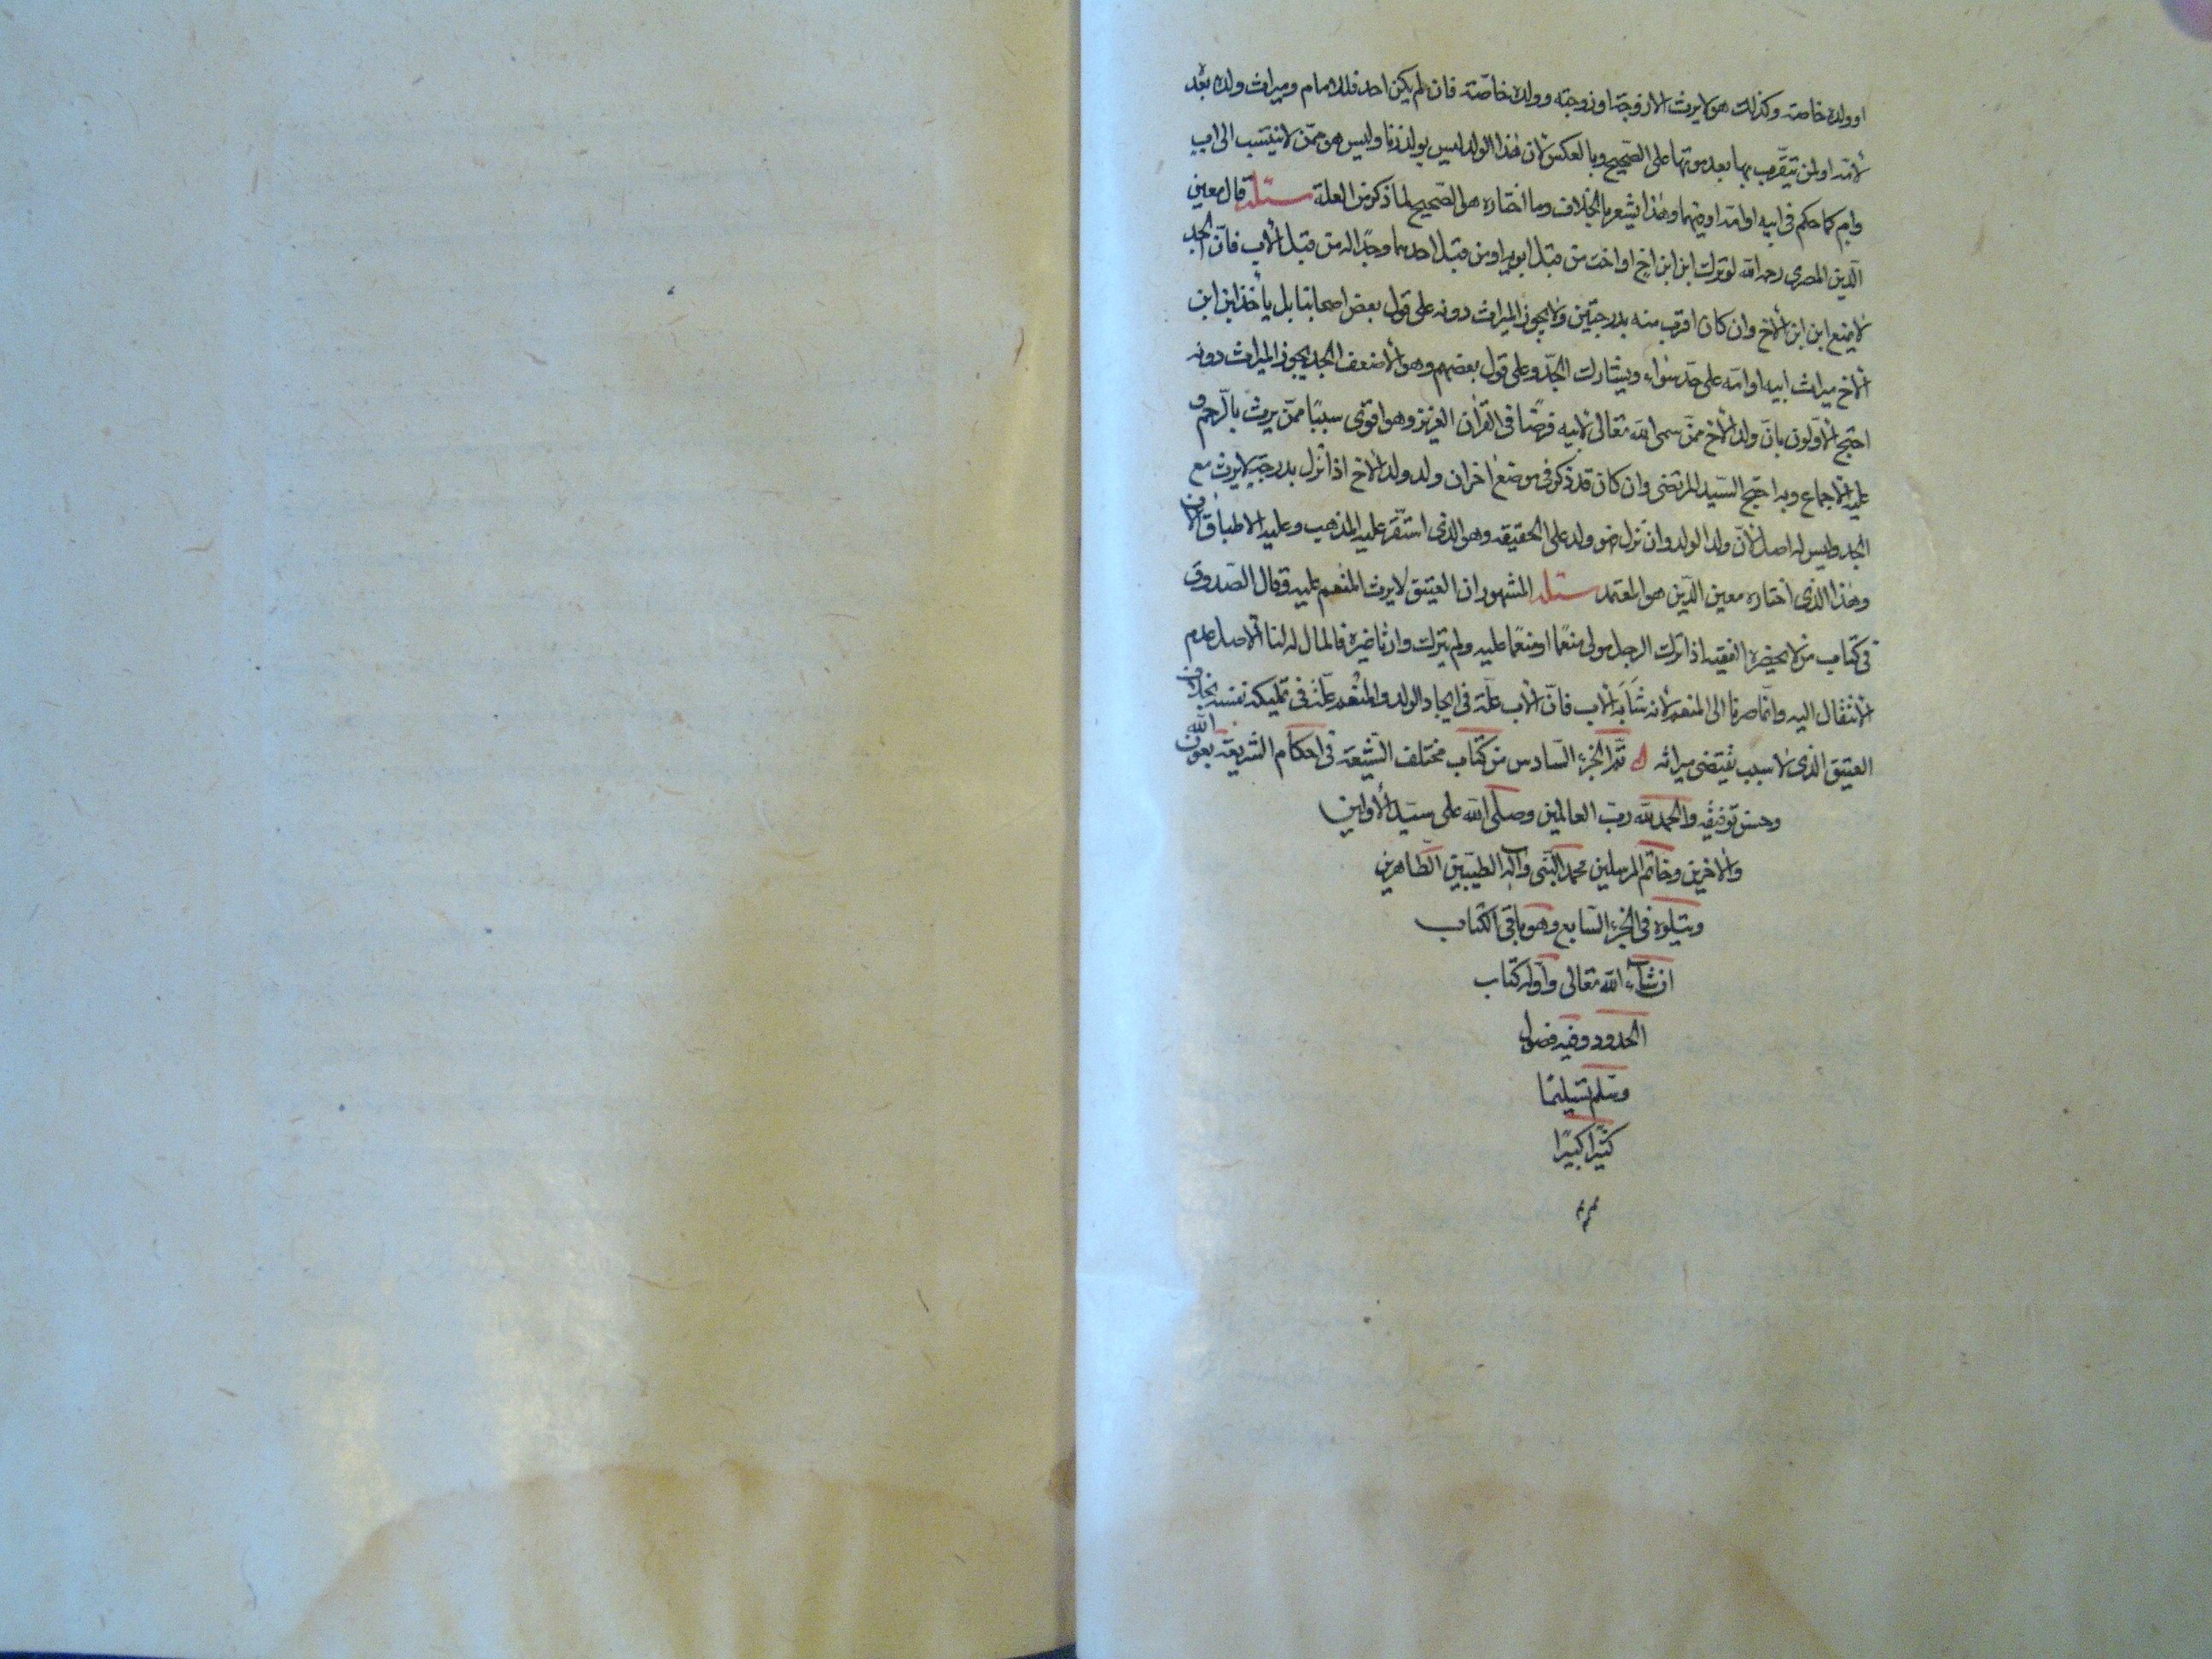 او ولده خاصة وكذلك هو لا يرث الا زوجة او زوجته وولده خاصّة فان لم يكن احد فللامام وميراث ولده بعد
لأمّه او لمن يتقرّب بها بعد موتها على الصّحيح وبالعكس لأن هذا الولد ليس بولد زنا وليس هو ممّن لا ينتسب الى اب
وام كما حكم في ابيه او امّه او فيهما وهذا يشعر بالخلاف وما اختاره هو الصّحيح لما ذكر من العلة مسئلة قال معين
الدّين المصرى رحمه الله لو ترك ابن ابن اخ او اخت من قبل ابويه او من قبل احدهما وجدّا له من قبل الأب فانّ الجد
لا يمنع ابن ابن الأخ وان كان اقرب منه بدرجتين ولا يحوز الميراث دونه على قول بعض اصحابنا بل يأخذ ابن ابن
الأخ ميراث ابيه او امّه على حدّ سواء ويشارك الجدّ وعلى قول بعضهم وهو الأضعف الجد يحوز الميراث دونه
احتج الأوّلون بانّ ولد الأخ ممّن سمى الله تعالى لأبيه فرضًا في القرآن العزيز وهو اقوى سببًا ممّن يرث بالرّحم و
عليه الاجماع وبه احتج السّيد المرتضى وان كان قد ذكر في موضع اخر ان ولد ولد الأخ اذا نزل بدرجة لا يرث مع
الجد وليس له اصل لأنّ ولد الولد وان نزل فهو ولد على الحقيقه وهو الذى استقرّ عليه المذهب وعليه الاطباق الان
وهذا الذى اختاره معين الدّين هو المعتمد مسئلة المشهور ان العتيق لا يرث المنعم عليه وقال الصّدوق
في كتاب من لا يحضره الفقيه اذا ترك الرجل مولى منعمًا او منعمًا عليه ولم يترك وارثا غيره فالمال له لنا الأصل عدم
الأنتقال اليه وانّما صرنا الى المنعم لأنه شابه الأب فانّ الأب علّة في ايجاد الولد والمنعم علّة في تمليكه نفسه بخلاف
العتيق الذى لا سبب يقتضى ميراثه تمّ الجزء السّادس من كتاب مختلف الشّيعة في احكام الشريعة بعون الله
وحسن توفيقه والحمد لله رب العالمين وصلّى الله على سيّد الأوّلين
والأخرين وخاتم المرسلين محمد النّبى وآله الطيّبين الطّاهرين
ويتلوه في الجزء السّابع وهو باقى الكتاب
انشاء الله تعالى واوّله كتاب
الحدود وفيه فصول
وسلّم تسليمًا
كثيرًا كبيرًا